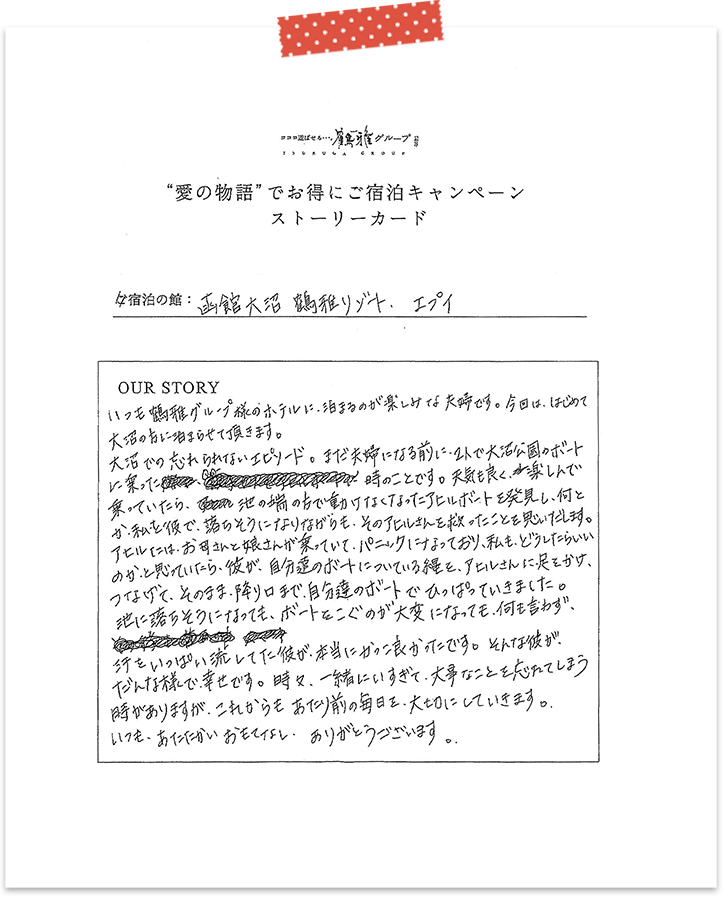 ココロ遊ばせる… 鶴雅グループ
TSURUGA GROUP
“愛の物語”でお得にご宿泊キャンペーン
ストーリーカード
ご宿泊の館： 函館大沼 鶴雅リゾート. エプイ
OUR STORY
いつも鶴雅グループ様のホテルに、泊まるのが楽しみな夫婦です。今回は、はじめて
大沼の方に泊まらせて頂きます。
大沼での忘れられないエピソード。まだ夫婦になる前に、2人で大沼公園のボート
に乗った 時のことです。天気も良く、楽しんで
乗っていたら、 池の端の方で動けなくなったアヒルボートを発見し、何と
か、私と彼で、落ちそうになりながらも、そのアヒルさんを救ったことを思いだします。
アヒルには、お母さんと娘さんが乗っていて、パニックになっており、私も、どうしたらいい
のか、と思っていたら、彼が、自分達のボートについている縄を、アヒルさんに、足をかけ、
つなげて、そのまま、降り口まで、自分達のボートでひっぱっていきました。
池に落ちそうになっても、ボートをこぐのが大変になっても、何も言わず、
汗をいっぱい流してた彼が、本当にかっこ良かったです。そんな彼が、
だんな様で、幸せです。時々、一緒にいすぎて、大事なことを忘れてしまう
時がありますが、これからも あたり前の毎日を、大切にしていきます。
いつも、あたたかい おもてなし、ありがとうございます。